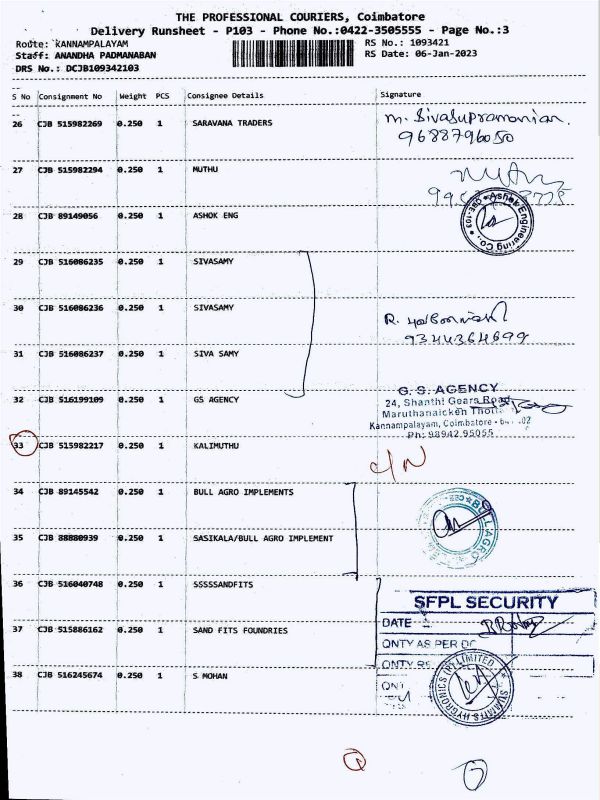 THE PROFESSIONAL COURIERS, Coimbatore
Delivery Runsheet - P103 - Phone No.:0422-3505555 - Page No.:3
Route: KANNAMPALAYAM
RS No.: 1093421
Staff: ANANDHA PADMANABAN
RS Date: 06-Jan-2023
DRS No.: DCJB109342103
S No Consignment No Weight PCS Consignee Details Signature
26 CJB 515982269 0.250 1 SARAVANA TRADERS
m. Sivasupramanian.
9688796050
27 CJB 515982294 0.250 1 MUTHU
28 CJB 89149056 0.250 1 ASHOK ENG
Ashok Engineering Co., CBE-103
29 CJB 516086235 0.250 1 SIVASAMY
30 CJB 516086236 0.250 1 SIVASAMY
R.
9344364699
31 CJB 516086237 0.250 1 SIVA SAMY
32 CJB 516199109 0.250 1 GS AGENCY
G. S. AGENCY
24, Shanthi Gears Road
Maruthanaicken Thotta
Kannampalayam, Coimbatore - 02
Ph: 98942 95055
33 CJB 515982217 0.250 1 KALIMUTHU
C/N
34 CJB 89145542 0.250 1 BULL AGRO IMPLEMENTS
35 CJB 88880939 0.250 1 SASIKALA/BULL AGRO IMPLEMENT
36 CJB 516040748 0.250 1 SSSSSANDFITS
SFPL SECURITY
DATE
37 CJB 515886162 0.250 1 SAND FITS FOUNDRIES
QNTY AS PER DC
QNTY RE
38 CJB 516245674 0.250 1 S MOHAN
QNT
SUMMITS HYGRONICS (P) LIMITED